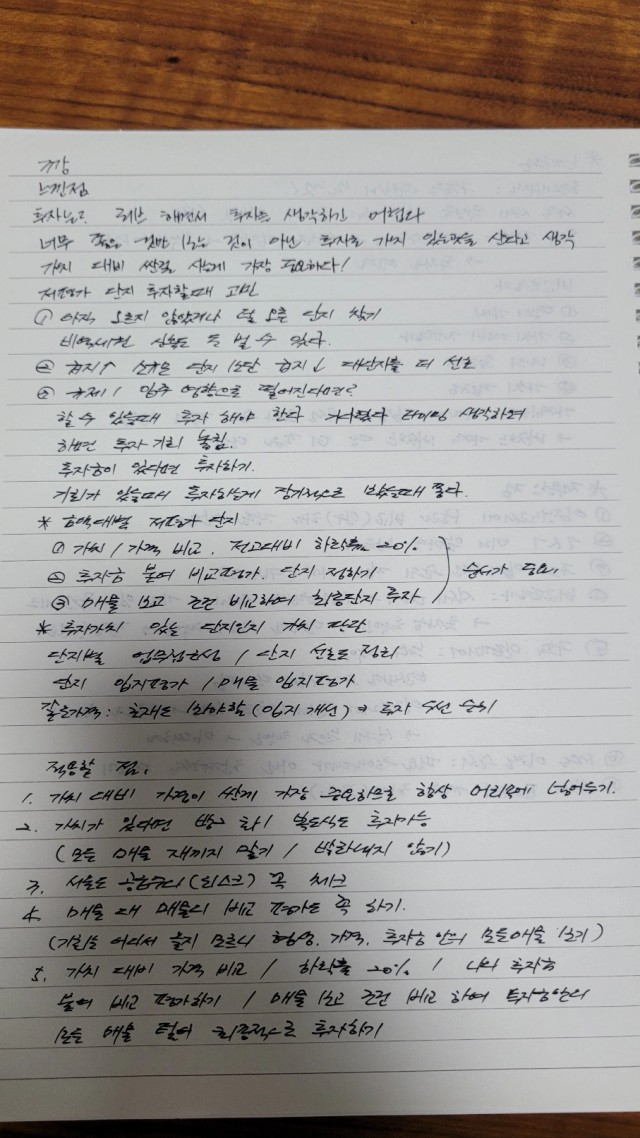 7강
느낀점
투자는 해서 투자를 생각하긴 어렵다
너무 좋은 것만 보는 것이 아닌 투자로 가치 있는곳을 산다고 생각
가치 대비 싼걸 사는게 가장 중요하다!
저평가 단지 투자할때 고민
① 아직 오르지 않았거나 덜 오른 단지 찾기
비역세권 신축도 돈 벌 수 있다.
② 입지↑ 단지 보단 입지↓ 대단지를 더 선호
③ 규제 / 입주 영향으로 떨어진다면?
할 수 있을때 투자 해야 한다 기다렸다 타이밍 생각하며
하면 투자 기회 놓침.
투자금이 있다면 투자하기.
기회가 있을때 투자하는게 장기적으로 봤을때 좋다.
* 금액대별 저평가 단지
① 가치 / 가격 비교. 전고대비 하락률 20%
② 투자금 붙여 비교평가. 단지 정하기 순서가 중요.
③ 매물 보고 조건 비교하여 최종단지 투자
* 투자가치 있는 단지인지 가치 판단
단지별 업무접근성 / 단지 선호도 정리
단지 입지평가 / 매물 입지평가
같은가격: 호재도 봐야함 (입지 개선) → 투자 우선 순위
적용할 점.
1. 가치 대비 가격이 싼게 가장 중요하므로 항상 머리속에 넣어두기.
2. 가치가 있다면 방2 화1 복도식도 투자가능
(모든 매물 재끼지 말기 / 발라내지 않기)
3. 서울도 공급수디 (리스크) 꼭 체크
4. 매물 대 매물의 비교 평가도 꼭 하기.
(기회는 어디서 올지 모르니 협상. 가격. 투자금 안의 모든매물 보기)
5. 가치 대비 가격 비교 / 하락률 20% / 나의 투자금
붙여 비교 평가하기 / 매물 보고 조건 비교 하여 투자금안의
모든 매물 털어 최종적으로 투자하기